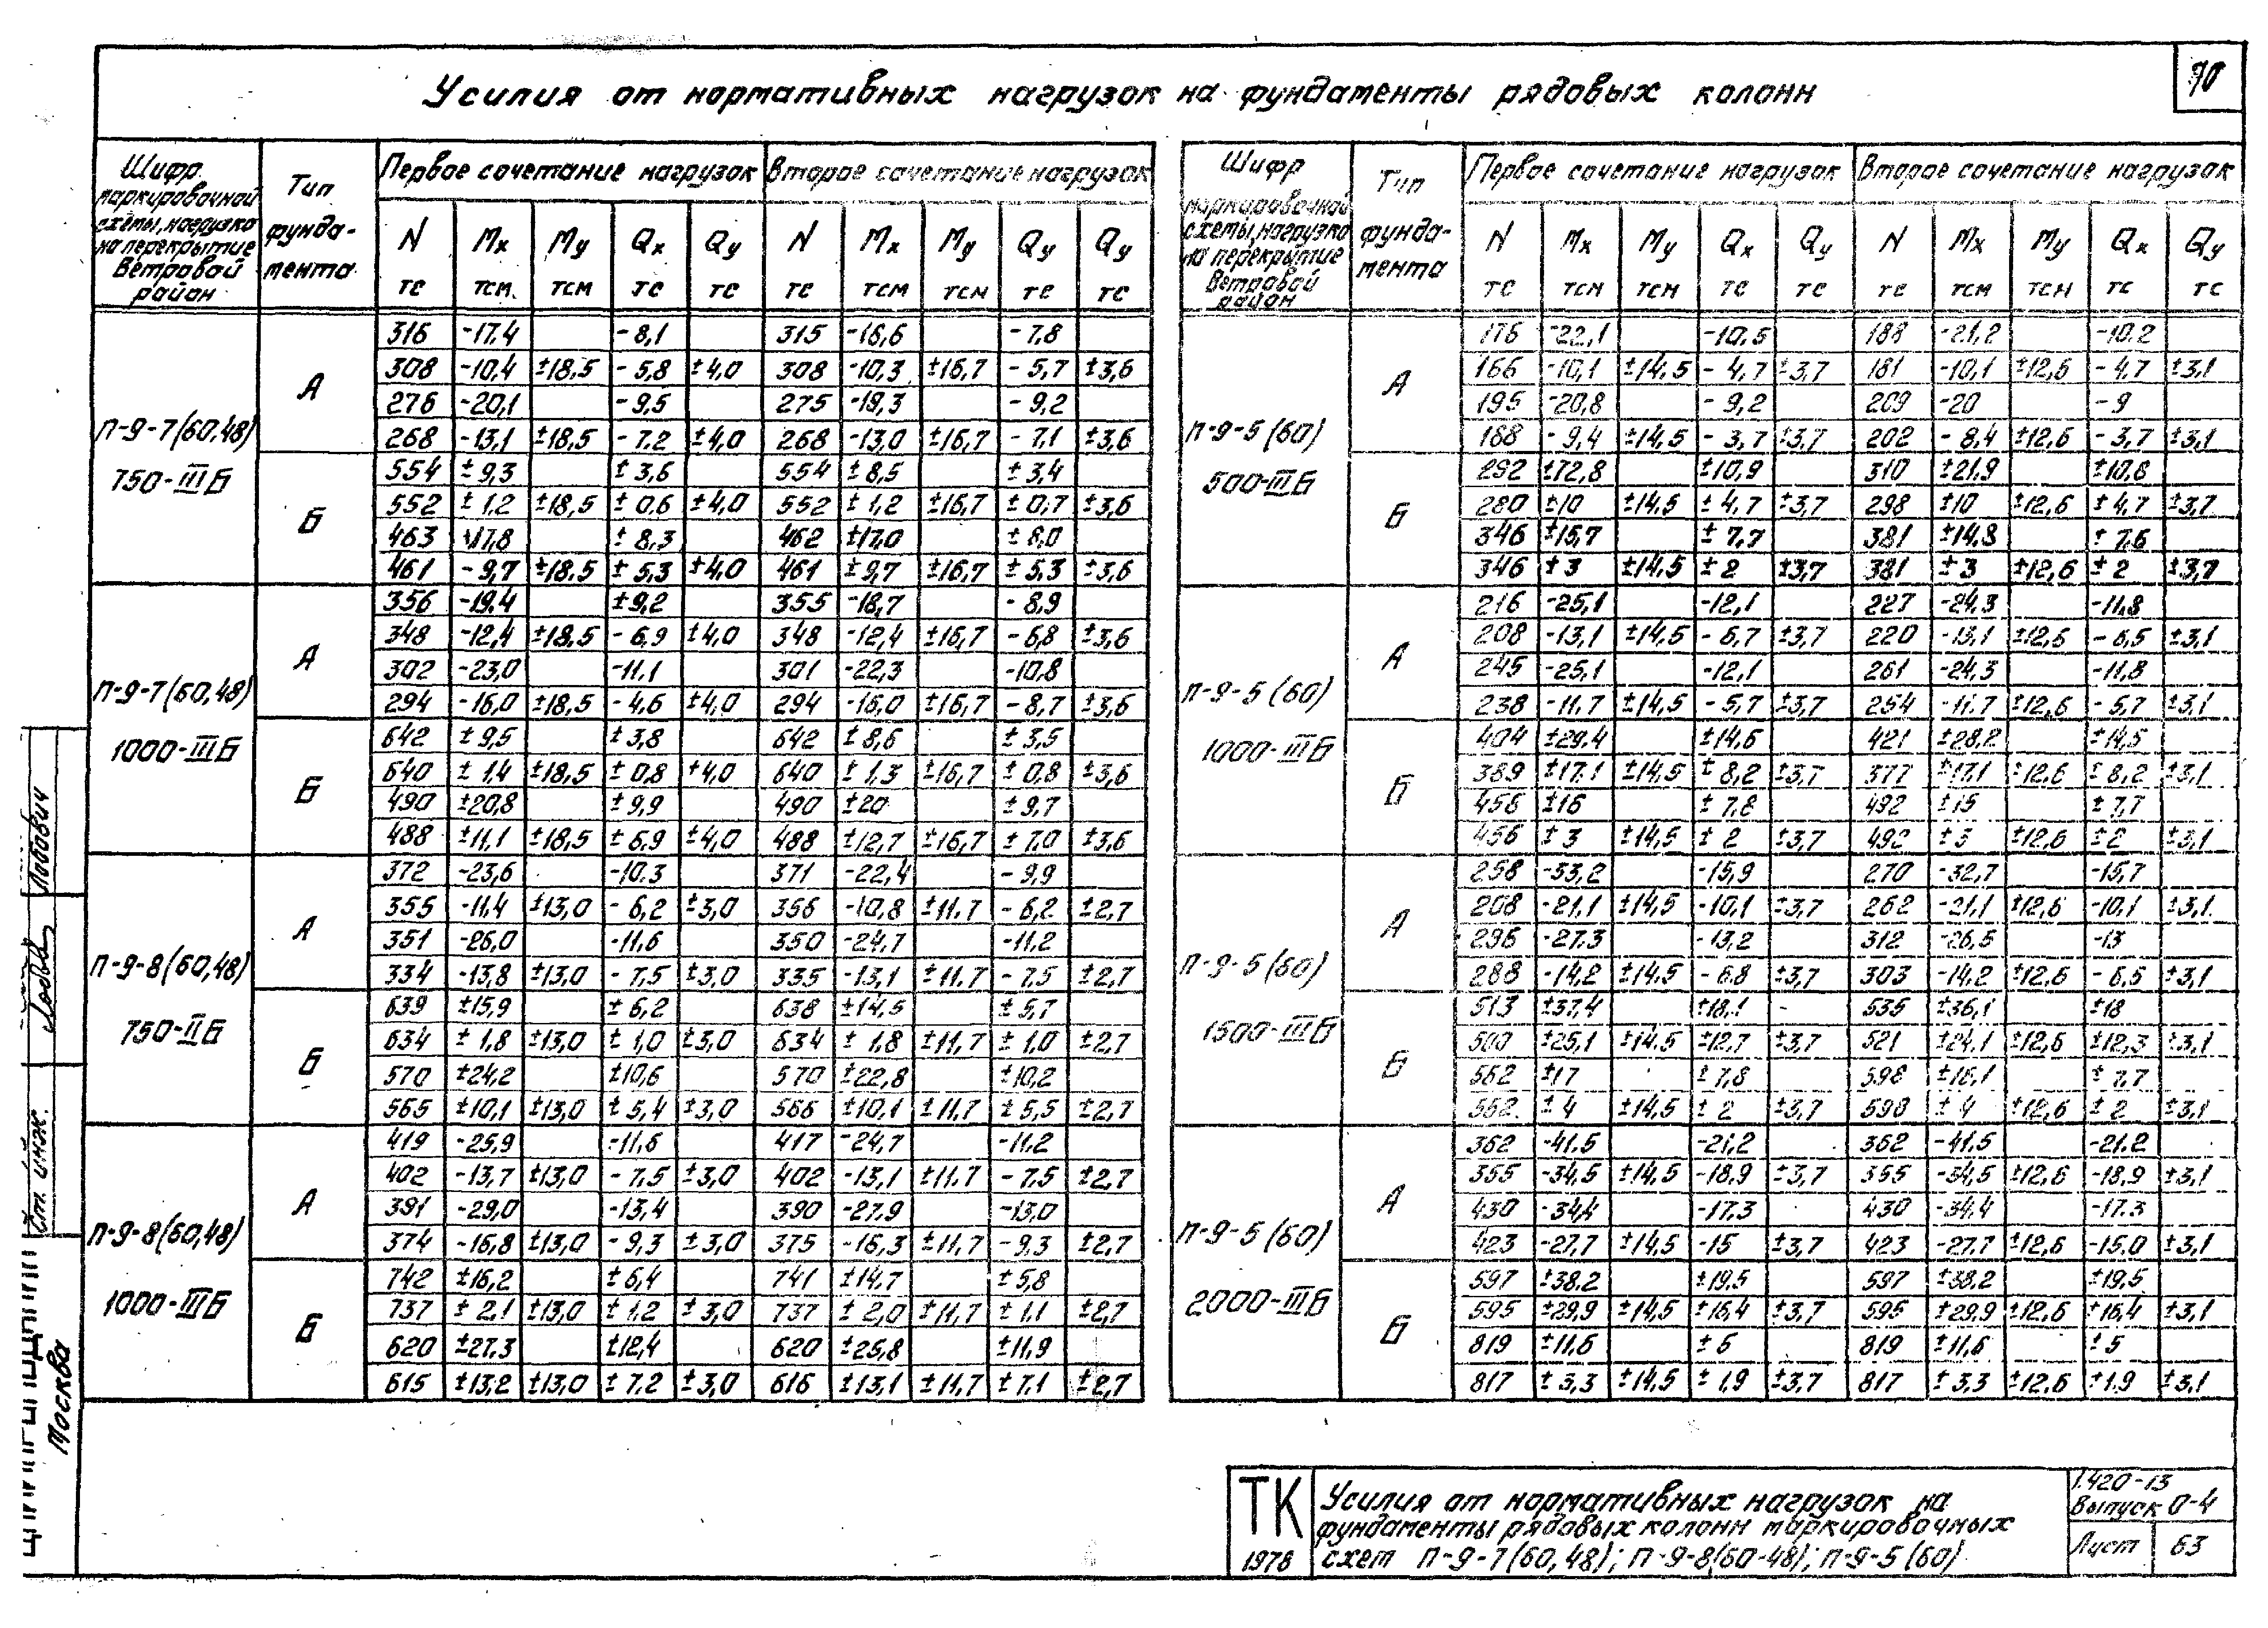 70
Усилия от нормативных нагрузок на фундаменты рядовых колонн
Шифр маркировочной схемы, нагрузка на перекрытие Ветровой район | Тип фундамента | Первое сочетание нагрузок | Второе сочетание нагрузок
N тс | Mx тсм | My тсм | Qx тс | Qy тс | N тс | Mx тсм | My тсм | Qy тс | Qy тс
П-9-7(60,48) 750-IIIБ
А
316 -17,4 -8,1 315 -16,6 -7,8
308 -10,4 ±18,5 -5,8 ±4,0 308 -10,3 ±16,7 -5,7 ±3,6
276 -20,1 -9,5 275 -19,3 -9,2
268 -13,1 ±18,5 -7,2 ±4,0 268 -13,0 ±16,7 -7,1 ±3,6
Б
554 ±9,3 ±3,6 554 ±8,5 ±3,4
552 ±1,2 ±18,5 ±0,6 ±4,0 552 ±1,2 ±16,7 ±0,7 ±3,6
463 ±17,8 ±8,3 462 ±17,0 ±8,0
461 -9,7 ±18,5 ±5,3 ±4,0 461 ±9,7 ±16,7 ±5,3 ±3,6
П-9-7(60,48) 1000-IIIБ
А
356 -19,4 ±9,2 355 -18,7 -8,9
348 -12,4 ±18,5 -6,9 ±4,0 348 -12,4 ±16,7 -6,8 ±3,6
302 -23,0 -11,1 301 -22,3 -10,8
294 -16,0 ±18,5 -4,6 ±4,0 294 -16,0 ±16,7 -8,7 ±3,6
Б
642 ±9,5 ±3,8 642 ±8,6 ±3,5
640 ±1,4 ±18,5 ±0,8 ±4,0 640 ±1,3 ±16,7 ±0,8 ±3,6
490 ±20,8 ±9,9 490 ±20 ±9,7
488 ±11,1 ±18,5 ±6,9 ±4,0 488 ±12,7 ±16,7 ±7,0 ±3,6
П-9-8(60,48) 750-IIБ
А
372 -23,6 -10,3 371 -22,4 -9,9
355 -11,4 ±13,0 -6,2 ±3,0 356 -10,8 ±11,7 -6,2 ±2,7
351 -26,0 -11,6 350 -24,7 -11,2
334 -13,8 ±13,0 -7,5 ±3,0 335 -13,1 ±11,7 -7,5 ±2,7
Б
639 ±15,9 ±6,2 638 ±14,5 ±5,7
634 ±1,8 ±13,0 ±1,0 ±3,0 634 ±1,8 ±11,7 ±1,0 ±2,7
570 ±24,2 ±10,6 570 ±22,8 ±10,2
565 ±10,1 ±13,0 ±5,4 ±3,0 566 ±10,1 ±11,7 ±5,5 ±2,7
П-9-8(60,48) 1000-IIIБ
А
419 -25,9 -11,6 417 -24,7 -11,2
402 -13,7 ±13,0 -7,5 ±3,0 402 -13,1 ±11,7 -7,5 ±2,7
391 -29,0 -13,4 390 -27,9 -13,0
374 -16,8 ±13,0 -9,3 ±3,0 375 -16,3 ±11,7 -9,3 ±2,7
Б
742 ±16,2 ±6,4 741 ±14,7 ±5,8
737 ±2,1 ±13,0 ±1,2 ±3,0 737 ±2,0 ±11,7 ±1,1 ±2,7
620 ±27,3 ±12,4 620 ±25,8 ±11,9
615 ±13,2 ±13,0 ±7,2 ±3,0 616 ±13,1 ±11,7 ±7,1 ±2,7
Шифр маркировочной схемы, нагрузка на перекрытие Ветровой район | Тип фундамента | Первое сочетание нагрузок | Второе сочетание нагрузок
N тс | Mx тсм | My тсм | Qx тс | Qy тс | N тс | Mx тсм | My тсм | Qx тс | Qy тс
П-9-5(60) 500-IIIБ
А
176 -22,1 -10,5 188 -21,2 -10,2
166 -10,1 ±14,5 -4,7 ±3,7 181 -10,1 ±12,6 -4,7 ±3,1
195 -20,8 -9,2 209 -20 -9
188 -9,4 ±14,5 -3,7 ±3,7 202 -8,4 ±12,6 -3,7 ±3,1
Б
292 ±72,8 ±10,9 310 ±21,9 ±10,8
280 ±10 ±14,5 ±4,7 ±3,7 298 ±10 ±12,6 ±4,7 ±3,7
346 ±15,7 ±7,7 381 ±14,8 ±7,6
346 ±3 ±14,5 ±2 ±3,7 381 ±3 ±12,6 ±2 ±3,7
П-9-5(60) 1000-IIIБ
А
216 -25,1 -12,1 227 -24,3 -11,8
208 -13,1 ±14,5 -6,7 ±3,7 220 -13,1 ±12,6 -6,5 ±3,1
245 -25,1 -12,1 261 -24,3 -11,8
238 -11,7 ±14,5 -5,7 ±3,7 254 -11,7 ±12,6 -5,7 ±3,1
Б
404 ±29,4 ±14,6 421 ±28,2 ±14,5
389 ±17,1 ±14,5 ±8,2 ±3,7 377 ±17,1 ±12,6 ±8,2 ±3,1
456 ±16 ±7,8 492 ±15 ±7,7
456 ±3 ±14,5 ±2 ±3,7 492 ±3 ±12,6 ±2 ±3,1
П-9-5(60) 1500-IIIБ
А
258 -33,2 -15,9 270 -32,7 -15,7
208 -21,1 ±14,5 -10,1 ±3,7 262 -21,1 ±12,6 -10,1 ±3,1
296 -27,3 -13,2 312 -26,5 -13
288 -14,2 ±14,5 -6,8 ±3,7 303 -14,2 ±12,6 -6,6 ±3,1
Б
513 ±37,4 ±18,1 535 ±36,1 ±18
500 ±25,1 ±14,5 ±12,7 ±3,7 521 ±24,1 ±12,6 ±12,3 ±3,1
562 ±17 ±7,8 598 ±16,1 ±7,7
562 ±4 ±14,5 ±2 ±3,7 598 ±4 ±12,6 ±2 ±3,1
П-9-5(60) 2000-IIIБ
А
362 -41,5 -21,2 362 -41,5 -21,2
355 -34,5 ±14,5 -18,9 ±3,7 355 -34,5 ±12,6 -18,9 ±3,1
430 -34,4 -17,3 430 -34,4 -17,3
423 -27,7 ±14,5 -15 ±3,7 423 -27,7 ±12,6 -15,0 ±3,1
Б
597 ±38,2 ±19,5 597 ±38,2 ±19,5
595 ±29,9 ±14,5 ±16,4 ±3,7 595 ±29,9 ±12,6 ±16,4 ±3,1
819 ±11,6 ±5 819 ±11,6 ±5
817 ±3,3 ±14,5 ±1,9 ±3,7 817 ±3,3 ±12,6 ±1,9 ±3,1
Ст. инж. Лобович
Москва
ТК
1978
Усилия от нормативных нагрузок на
фундаменты рядовых колонн маркировочных
схем П-9-7(60,48); П-9-8(60-48); П-9-5(60)
1.420-13
Выпуск 0-4
Лист 63